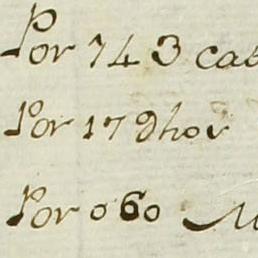 Por 743 cab
Por 17 dhos
Por 060 M